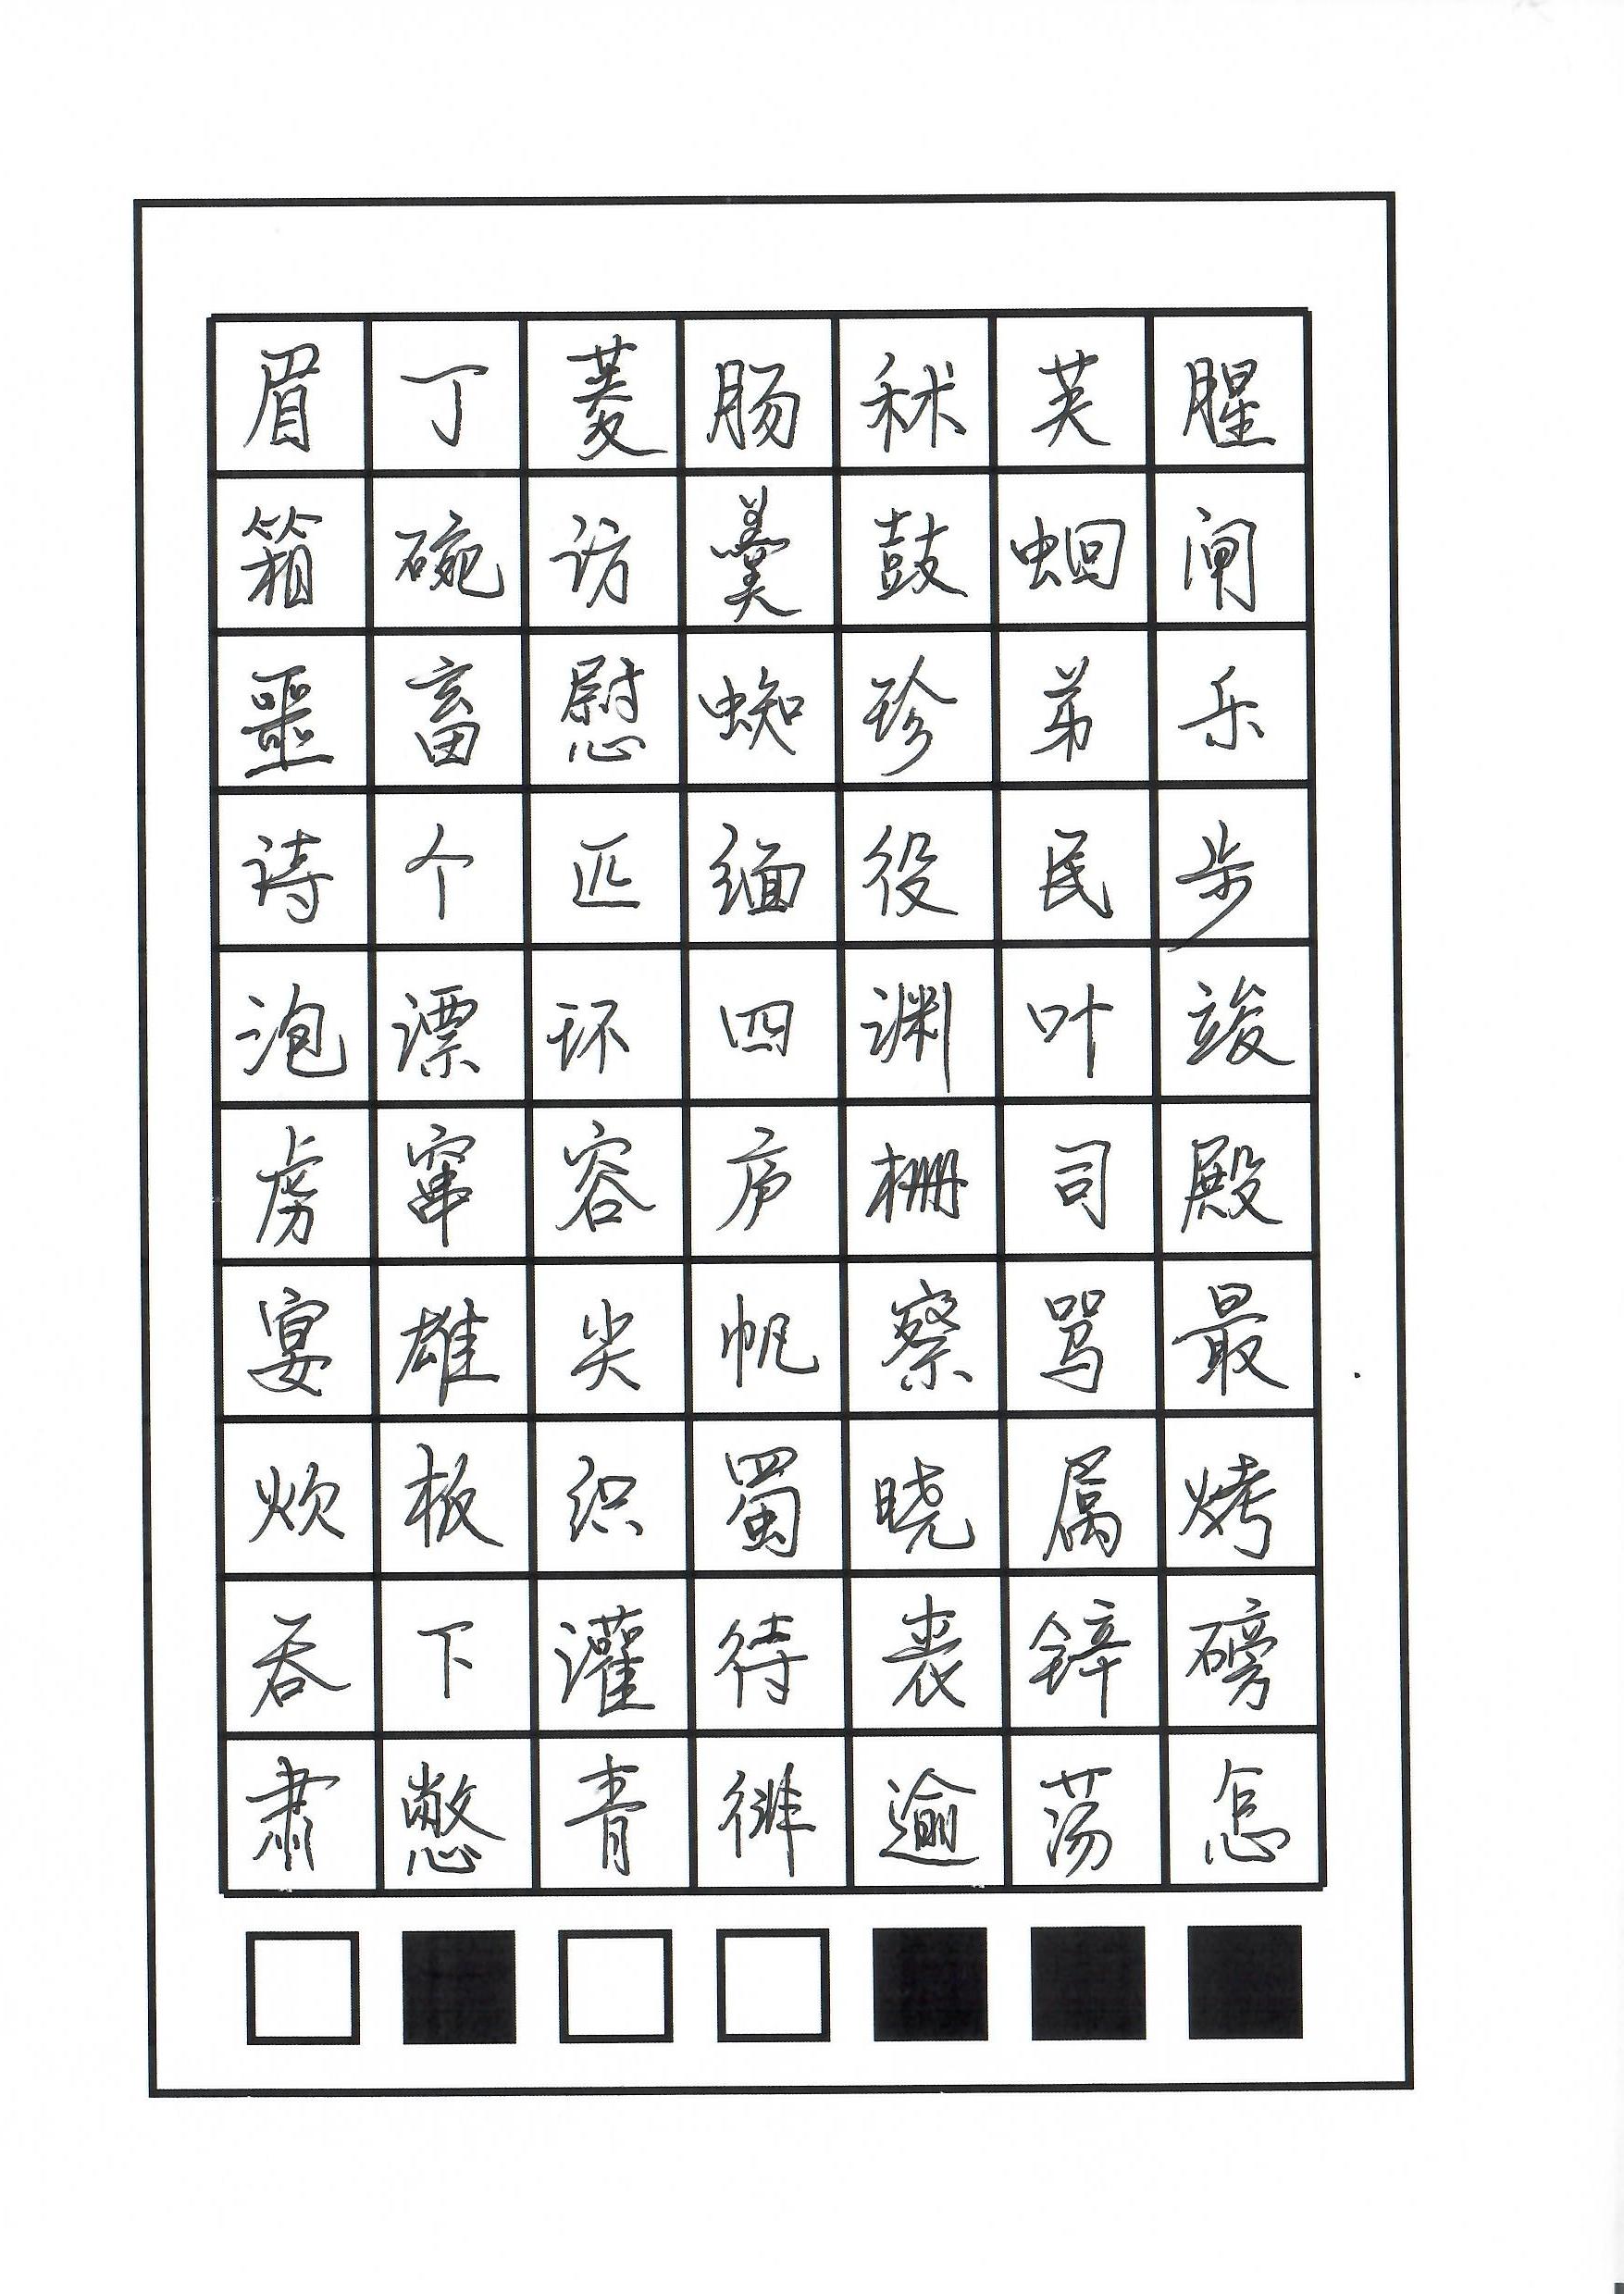 眉丁菱肠秫芙腥
箱碗访羹鼓蛔闸
噩畜慰蜘珍弟乐
诗个匹缅役民步
泡漂环四渊叶竣
虏窜容庐栅司殿
宴雄尖帆察骂最
炊板织蜀晓属烤
吞下灌待丧锌磅
肃憋青徘逾荡怎